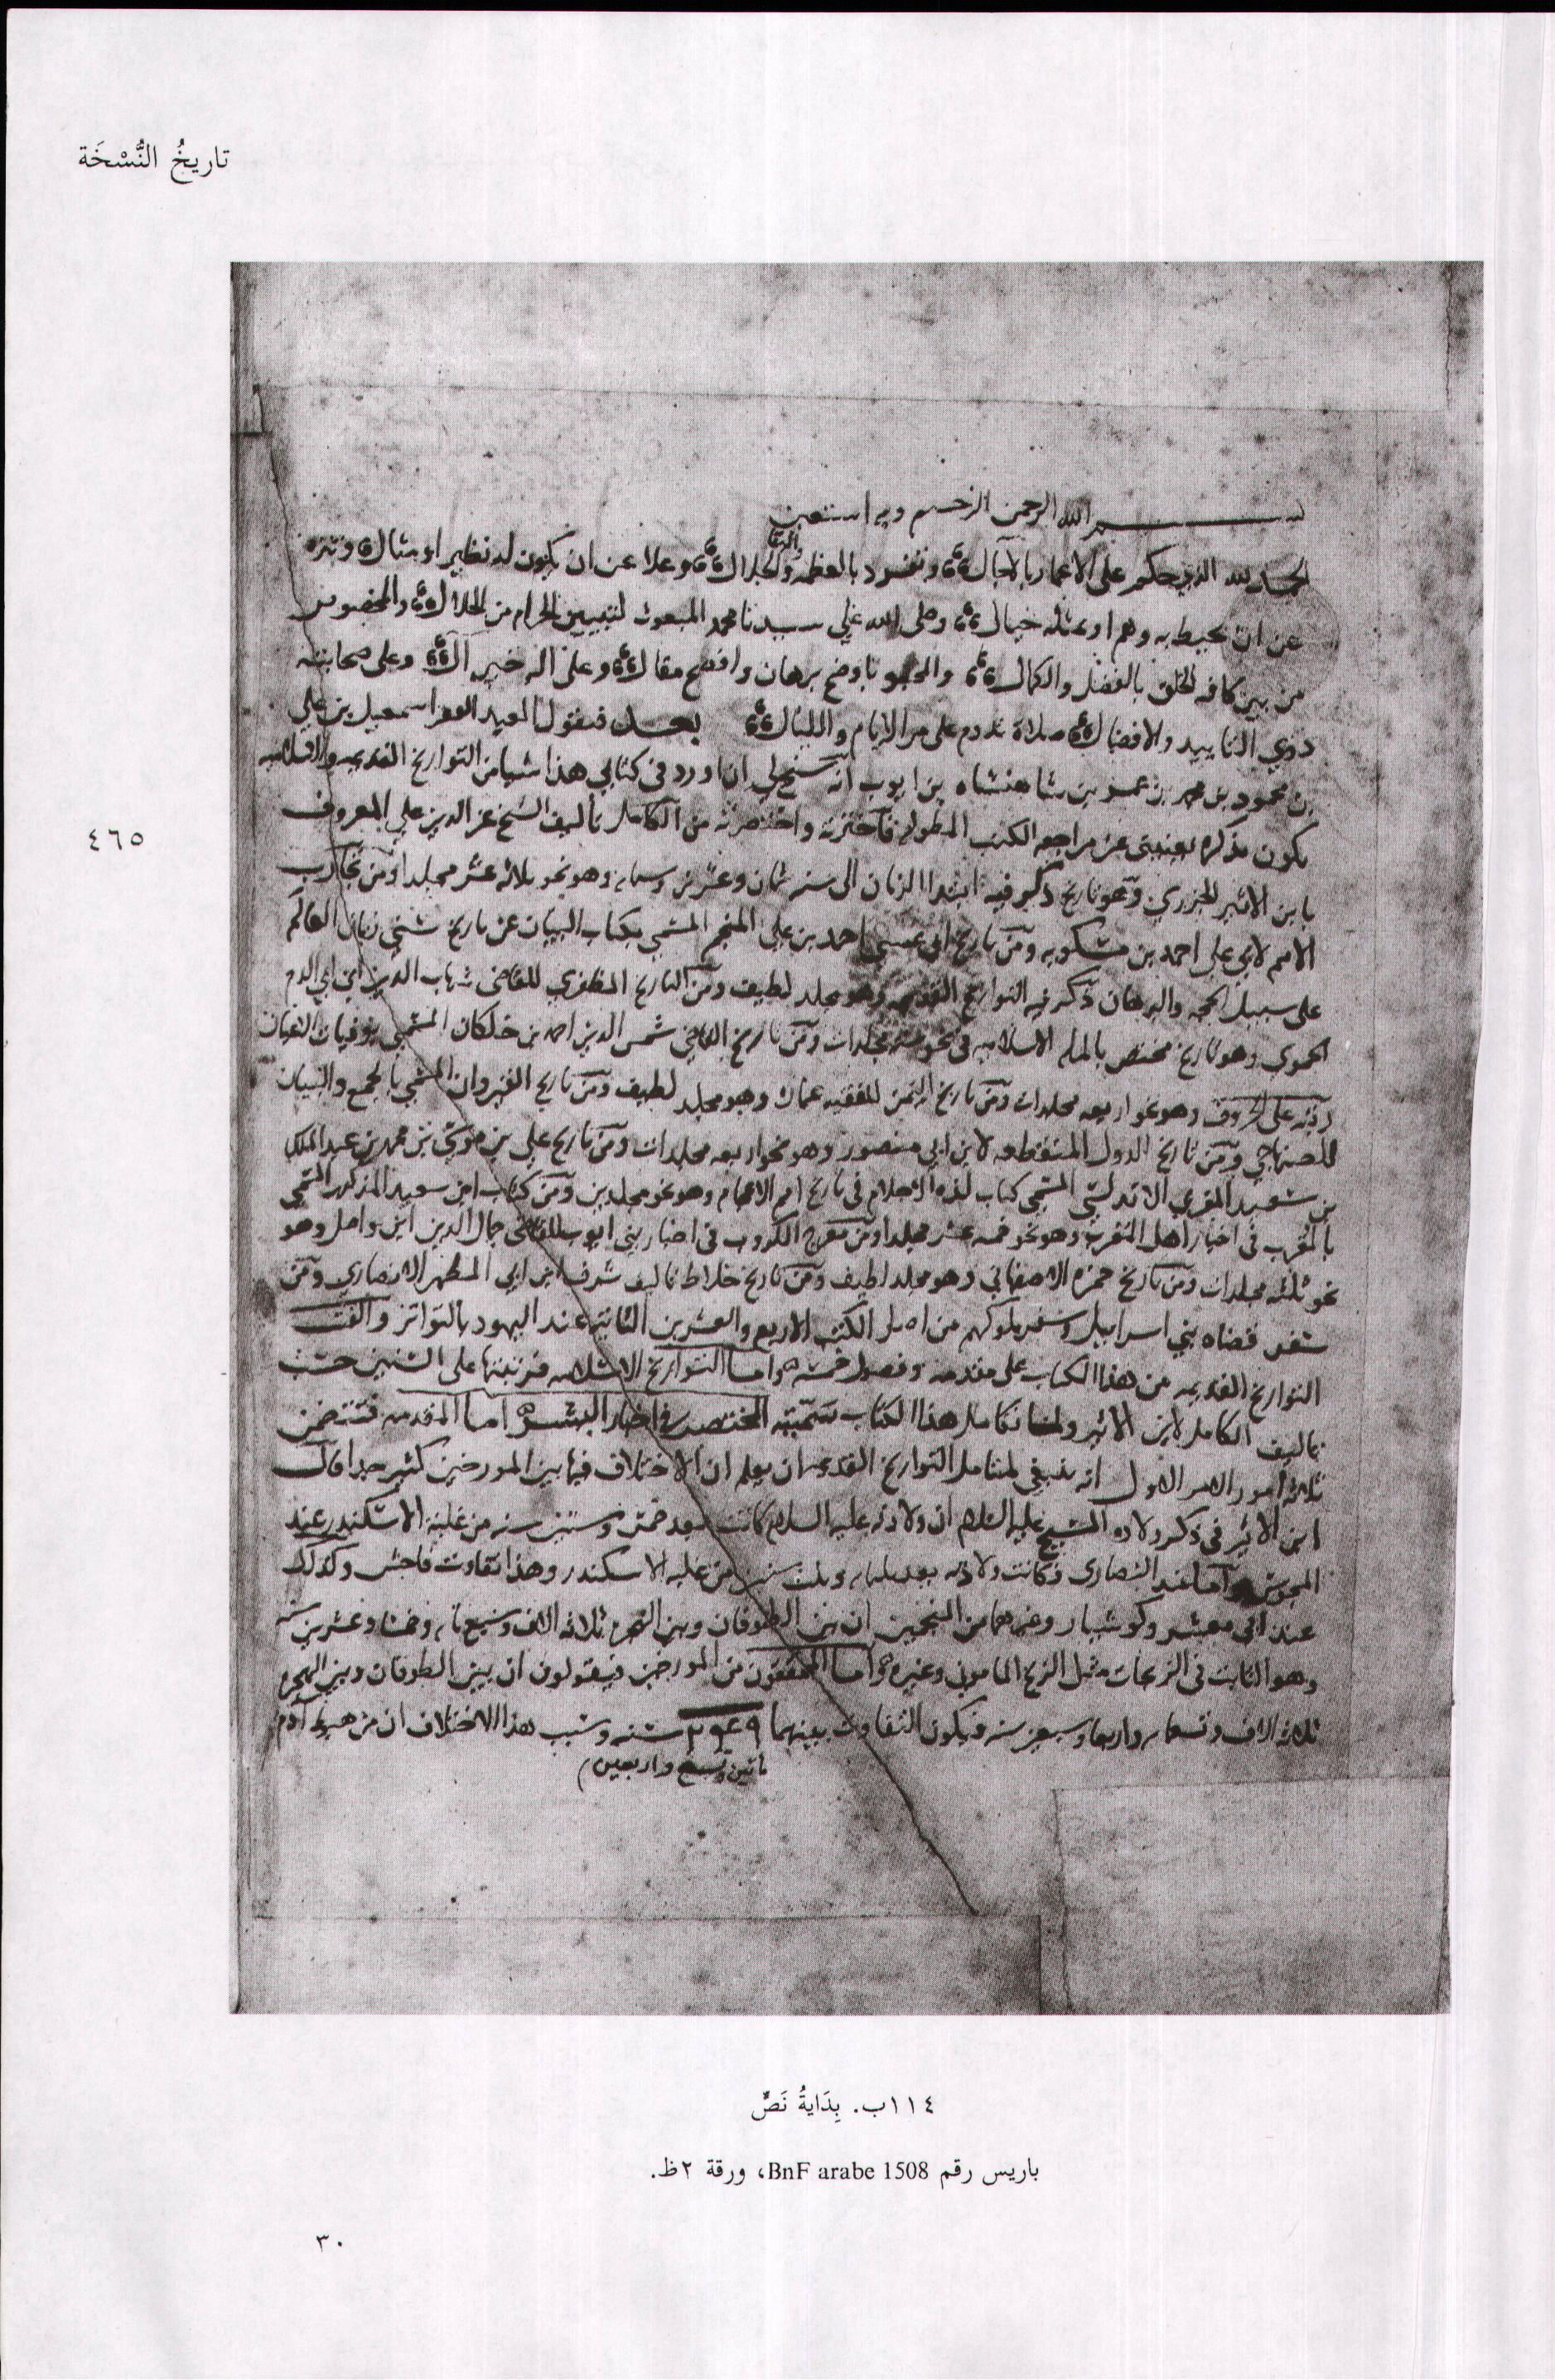 تاريخُ النُّسْخَة
بسم الله الرحمن الرحيم وبه استعين
الحمد لله الذي حكم على الاعمار بالآجال وتفرد بالعظمة والبقا والجلال وعلا عن ان يكون له نظير او مثال وتنزه
عن ان يحيط به وهم او يمثله خيال وصلى الله علي سيدنا محمد المبعوث لتبيين الحرام من الحلال والمخصوص
من بين كافه الخلق بالفضل والكمال والمحبو باوضح برهان وافصح مقال وعلى اله خير آل وعلى صحابته
ذوي التاييد والافضال صلاة تدوم على مر الايام والليال بعد فيقول العبد الفقير اسمعيل بن علي
بن محمود بن محمد بن عمر بن شاهنشاه بن ايوب انه سنح لي ان اورد في كتابي هذا شيا من التواريخ القديمه والاسلاميه
يكون تذكرة يغنيني عن مراجعه الكتب المطوله فاخترته واختصرته من الكامل تاليف الشيخ عز الدين علي المعروف
بابن الاثير الجزري وهو تاريخ ذكر فيه ابتدا الزمان الى سنه ثمان وعشرين وستمايه وهو نحو ثلاثه عشر مجلدا ومن تجارب
الامم لابي علي احمد بن مسكويه ومن تاريخ ابي عيسي احمد بن علي المنجم المسمي بكتاب البيان عن تاريخ سني زمان العالم
على سبيل الحجه والبرهان ذكر فيه التواريخ القديمه وهو مجلد لطيف ومن التاريخ المظفري للقاضي شهاب الدين ابن ابي الدم
الحموي وهو تاريخ مختص بالمله الاسلاميه في نحو سته مجلدات ومن تاريخ القاضي شمس الدين احمد بن خلكان المسمي بوفيات الاعيان
رتبه على الحروف وهو نحو اربعه مجلدات ومن تاريخ اليمن للفقيه عمارة وهو مجلد لطيف ومن تاريخ القيروان المسمي بالجمع والبيان
للصنهاجي ومن تاريخ الدول المنقطعه لابن ابي منصور وهو نحو اربعه مجلدات ومن تاريخ علي بن موسي بن محمد بن عبد الملك
بن سعيد المغربي الاندلسي المسمي كتاب لذه الاحلام في تاريخ امم الاعجام وهو نحو مجلدين ومن كتاب ابن سعيد المذكور المسمي
بالمغرب في اخبار اهل المغرب وهو نحو خمسه عشر مجلدا ومن مفرج الكروب في اخبار بني ايوب للقاضي جمال الدين ابن واصل وهو
نحو ثلثه مجلدات ومن تاريخ حمزه الاصفهاني وهو مجلد لطيف ومن تاريخ خلاط تاليف شرف ابن ابي المطهر الانصاري ومن
سفر قضاه بني اسراييل وسفر ملوكهم من اصل الكتب الاربع والعشرين الثابته عند اليهود بالتواتر والفت
التواريخ القديمه من هذا الكتاب على مقدمه وفصول خمسه واما التواريخ الاسلاميه فرتبتها على السنين حسب
تاليف الكامل لابن الاثير ولما تكامل هذا الكتاب سميته المختصر في اخبار البشر اما المقدمه فتتضمن
ثلاثه امور الامر الاول انه ينبغي لمتامل التواريخ القديمه ان يعلم ان الاختلاف فيها بين المورخين كثير جدا قال
ابن الاثير في ذكر ولاده المسيح عليه السلام ان ولادته عليه السلام كانت بعد خمس وستين سنه من غلبه الاسكندر عند
المجوس واما عند النصارى فكانت ولادته بعد ثلثمايه وثلث سنين من غلبه الاسكندر وهذا تفاوت فاحش وكذلك
عند ابي معشر وكوشيار وغيرهما من المنجمين ان بين الطوفان وبين الهجره ثلاثه الاف وسبع مايه وخمسا وعشرين سنه
وهو الثابت في الزيجات مثل الزيج الماموني وغيره واما المحققون من المورخين فيقولون ان بين الطوفان وبين الهجره
ثلاثه الاف وتسعمايه واربعا وسبعين سنه فيكون التفاوت بينهما ٢٤٩ سنه وسبب هذا الاختلاف ان من هبوط آدم
ماتين وتسع واربعين
٤٦٥
١١٤ب. بِدَايةُ نَصٍّ
باريس رقم BnF arabe 1508، ورقة ٢ظ.
٣٠